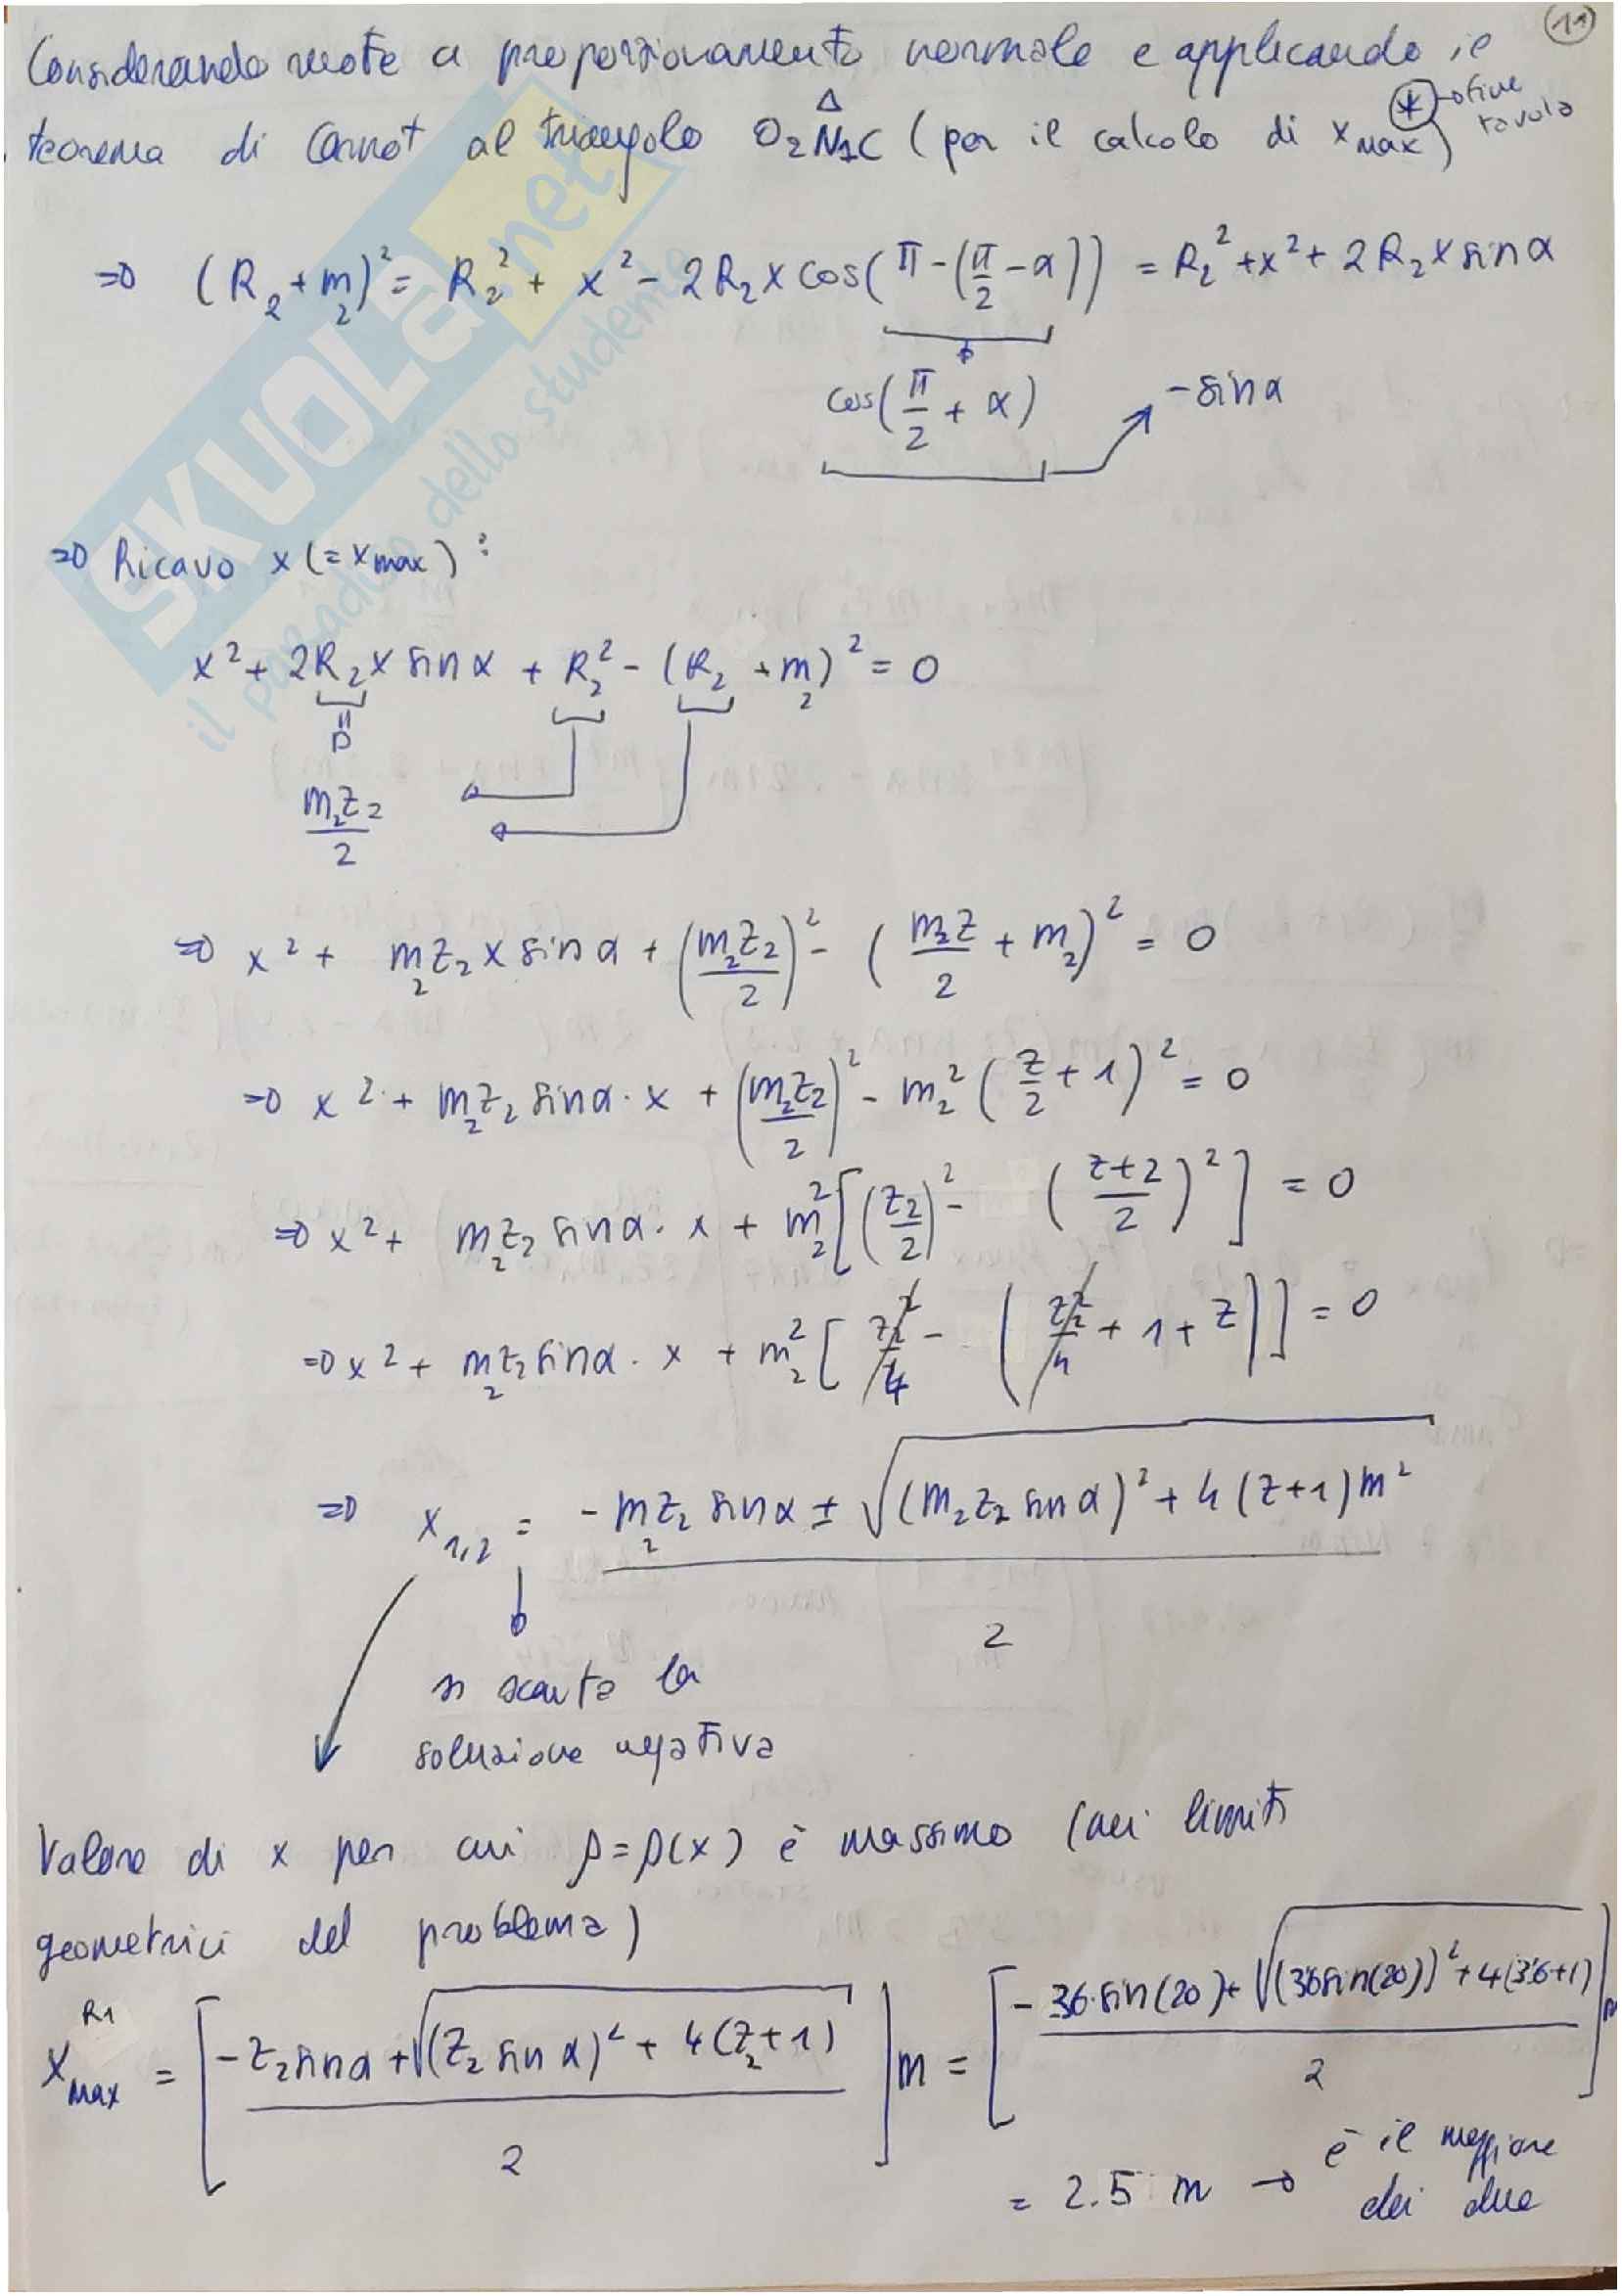 11
Considerando ruote a proporzionamento normale e applicando il
teorema di Carnot al triangolo O₂N₁C (per il calcolo di x_max) * → fine tavola
=> (R₂ + m₂)² = R₂² + x² - 2R₂x cos(π - (π/2 - α)) = R₂² + x² + 2R₂x sinα
cos(π/2 + α) → -sinα
=> Ricavo x (= x_max):
x² + 2R₂x sinα + R₂² - (R₂ + m₂)² = 0
m₂z₂/2
=> x² + m₂z₂ x sinα + (m₂z₂/2)² - (m₂z/2 + m₂)² = 0
=> x² + m₂z₂ sinα · x + (m₂z₂/2)² - m₂² (z/2 + 1)² = 0
=> x² + m₂z₂ sinα · x + m₂² [(z₂/2)² - ((z+2)/2)²] = 0
=> x² + m₂z₂ sinα · x + m₂² [z₂²/4 - (z₂²/4 + 1 + z)] = 0
=> x₁,₂ = (-m₂z₂ sinα ± √((m₂z₂ sinα)² + 4(z+1)m²))/2
si scarta la
soluzione negativa
Valore di x per cui ρ = ρ(x) è massimo (nei limiti
geometrici del problema)
x_max^R1 = [(-z₂sinα + √((z₂ sinα)² + 4(z₂+1)))/2] m = [(-36·sin(20) + √((36sin(20))² + 4(36+1)))/2] m
= 2.5 m → è il maggiore
dei due
SKUOLA.net
il paradiso dello studente